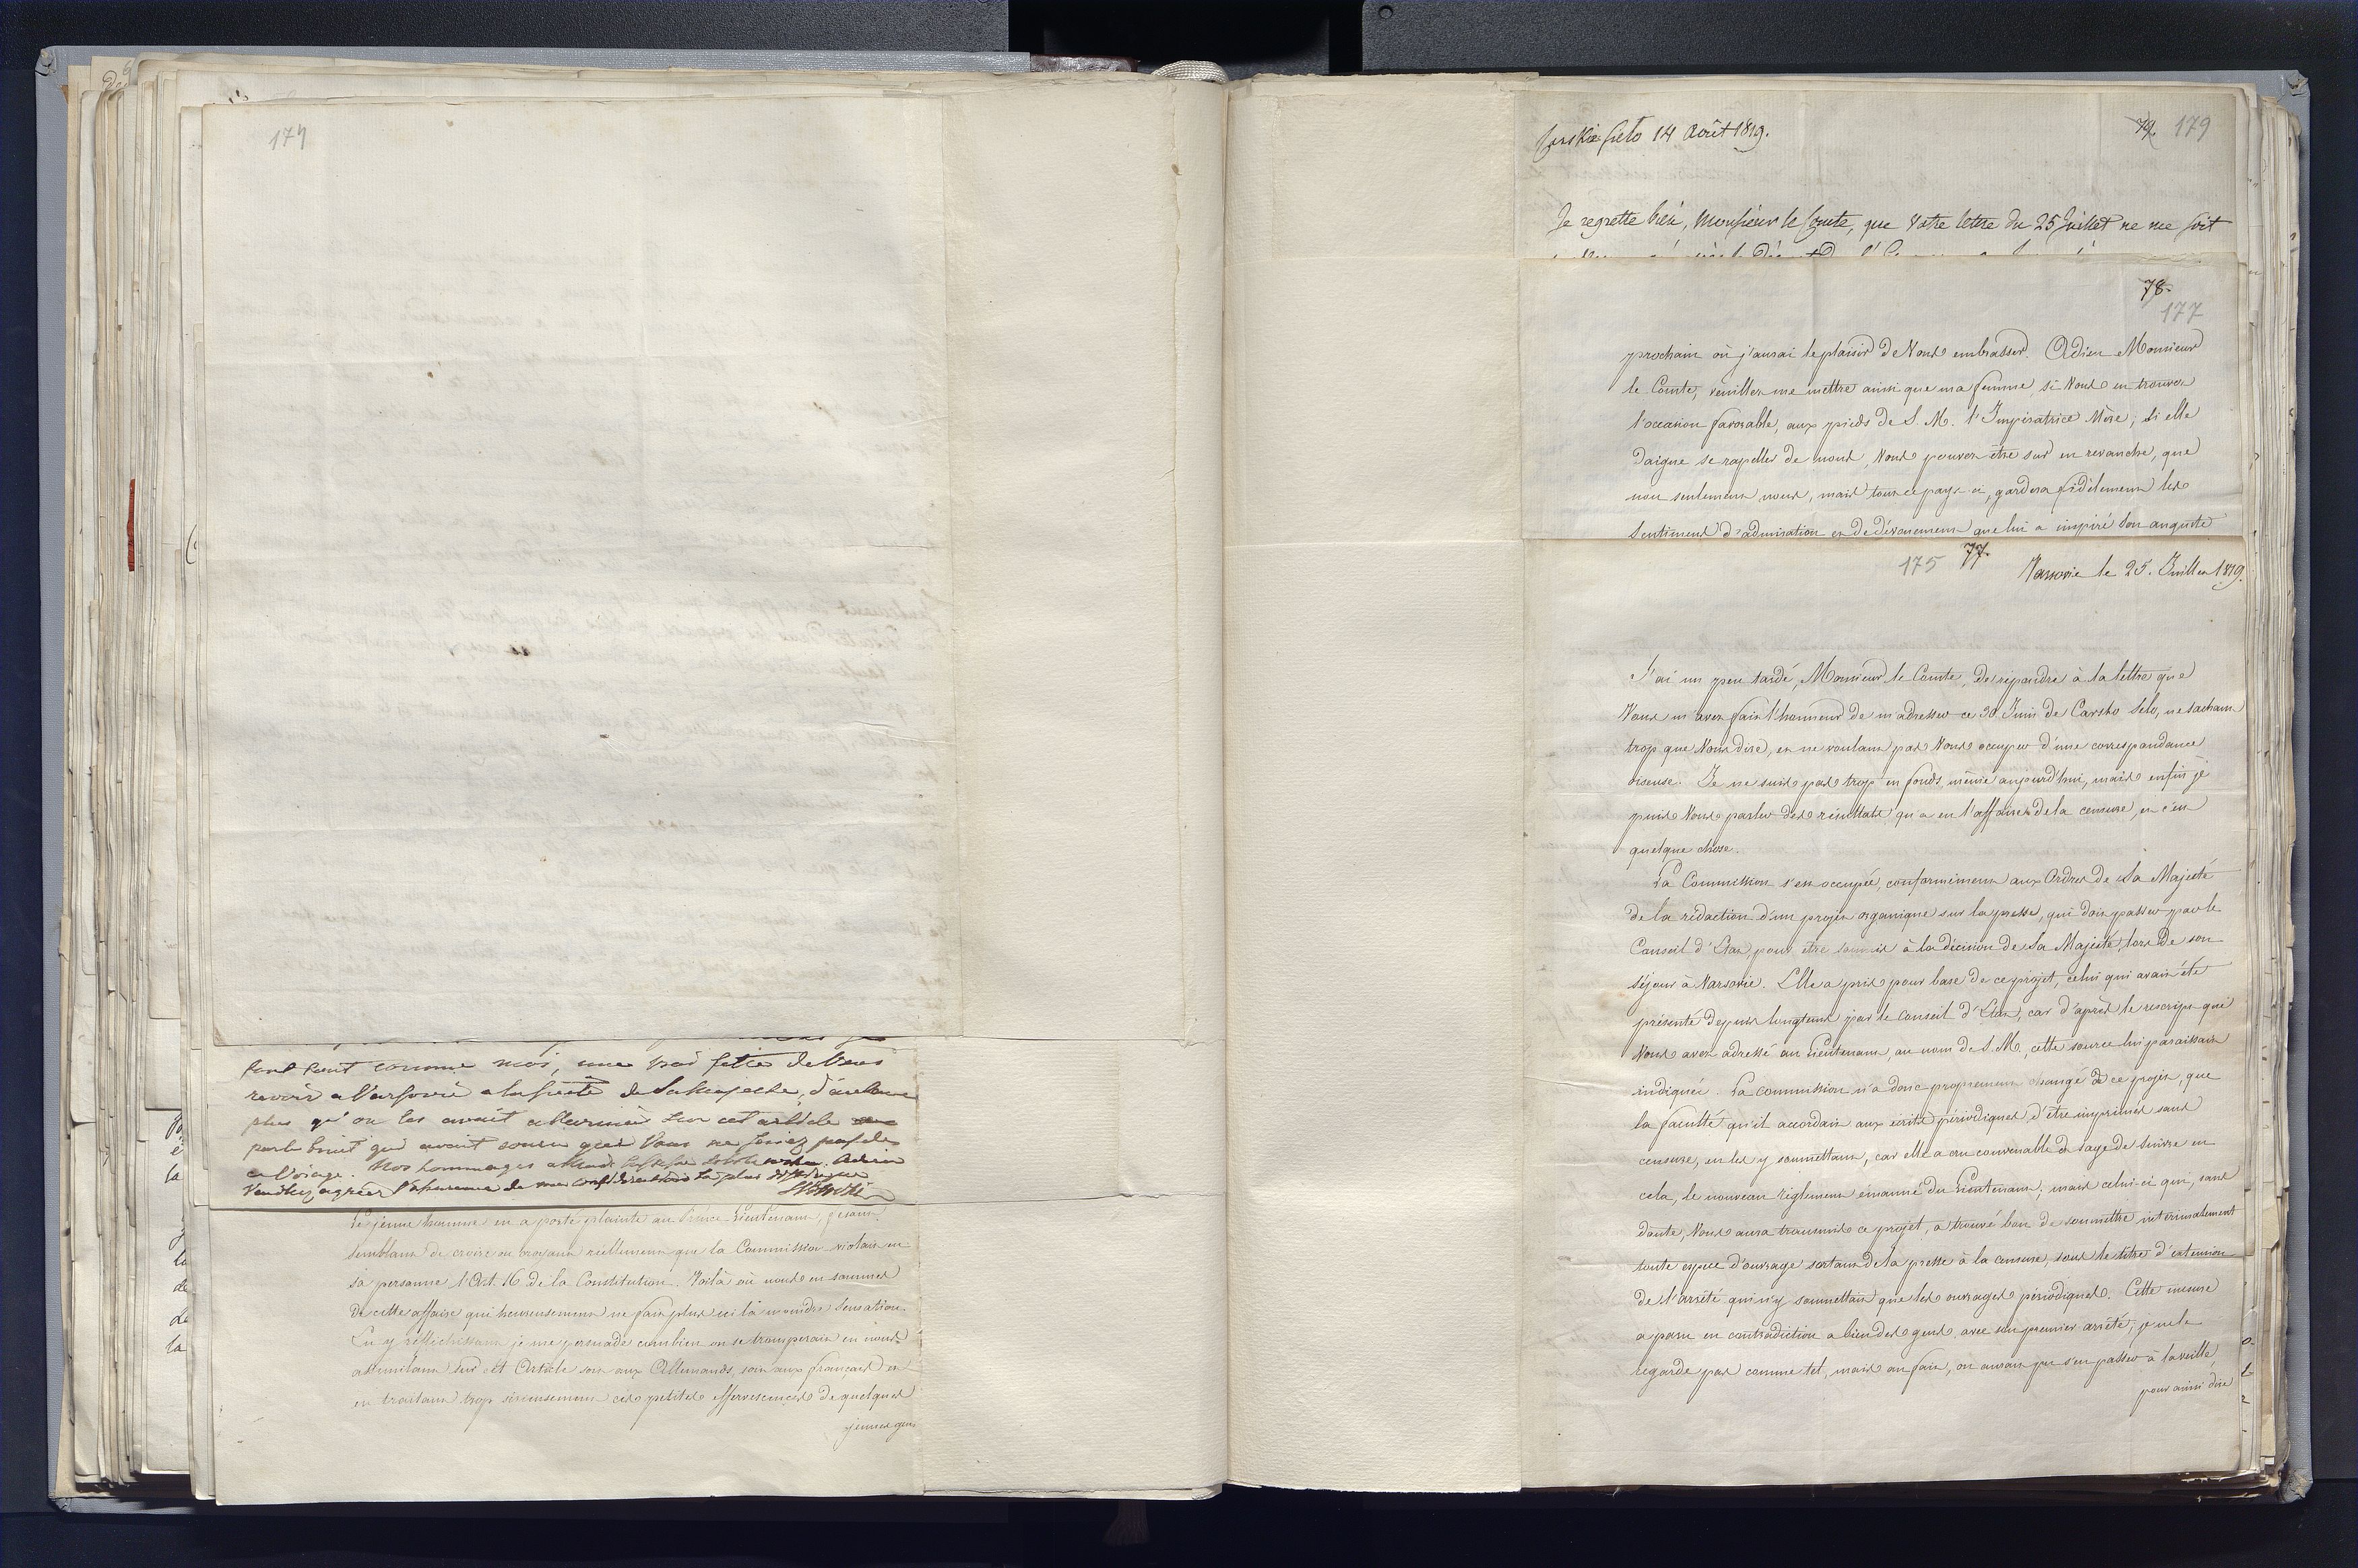 174
tout comme moi, une vraie fette de Vous
revoir a Varsovie a la suite de Sa Majeste, d'autant
plus qu'on les avait allarmés sur cet article
par le bruit qui avait couru que Vous ne seriez pas de
ce Voiage. Nos hommages a Mad.
Veuillez agréer l'assurance de ma consideration la plus distinguée
Le jeune homme en a porté plainte au Prince Lieutenant, fesant
semblant de croire ou croyant réellement que la Commission violait en
sa personne l'Art. 16 de la Constitution. Voilà où nous en sommes
de cette affaire qui heureusement ne fait plus ici la moindre sensation.
En y réfléchissant je me persuade combien on se tromperait en nous
assimilant sur cet Article soit aux Allemands, soit aux français et
en traitant trop sérieusement ces petites effervescences de quelques
jeunes gens
79. 179
Zarskoe Selo 14 Août 1819.
Je regrette bien, Monsieur le Comte, que Votre lettre du 25 Juillet ne me soit
78.
177
prochain où j'aurai le plaisir de Vous embrasser. Adieu Monsieur
le Comte, veuillez me mettre ainsi que ma femme, si Vous en trouvez
l'occasion favorable, aux pieds de S. M. l'Impératrice Mère; si elle
daigne se rapeller de nous, Vous pouvez être sur en revanche, que
non seulement nous, mais tout ce pays-ci, gardera fidèlement les
sentiments d'admiration et de dévouement que lui a inspiré Son auguste
175 77. Varsovie le 25. Juillet 1819.
J'ai un peu tardé, Monsieur le Comte, de répondre à la lettre que
Vous m'avez fait l'honneur de m'adresser ce 30 Juin de Carsko Selo, ne sachant
trop que Vous dire, et ne voulant pas Vous occuper d'une correspondance
oiseuse. Je ne suis pas trop en fonds, même aujourd'hui, mais enfin je
puis Vous parler des résultats qu'a eu l'affaire de la censure, et c'est
quelque chose.
La Commission s'est occupée, conformément aux Ordres de Sa Majesté
de la rédaction d'un projet organique sur la presse, qui doit passer par le
Conseil d'Etat, pour être soumis à la décision de Sa Majesté, lors de son
séjour à Varsovie. Elle a pris pour base de ce projet, celui qui avait été
présenté depuis longtems par le Conseil d'Etat, car d'après le rescript que
Vous avez adressé au Lieutenant, au nom de S. M., cette source lui paraissait
indiquée. La commission n'a donc proprement changé de ce projet, que
la faculté qu'il accordait aux écrits périodiques, d'être imprimés sans
censure, en les y soumettant, car elle a cru convenable et sage de suivre en
cela, le nouveau règlement émanné du Lieutenant; mais celui-ci qui, sans
doute, Vous aura transmis ce projet, a trouvé bon de soumettre intérimalement
toute espece d'ouvrage sortant de la presse à la censure, sous le titre d'extension
de l'arrêté qui n'y soumettait que les ouvrages périodiques. Cette mesure
a paru en contradiction a bien des gens, avec son premier arrêté; je ne la
regarde pas comme tel, mais au fait, on aurait pu s'en passer à la veille,
pour ainsi dire